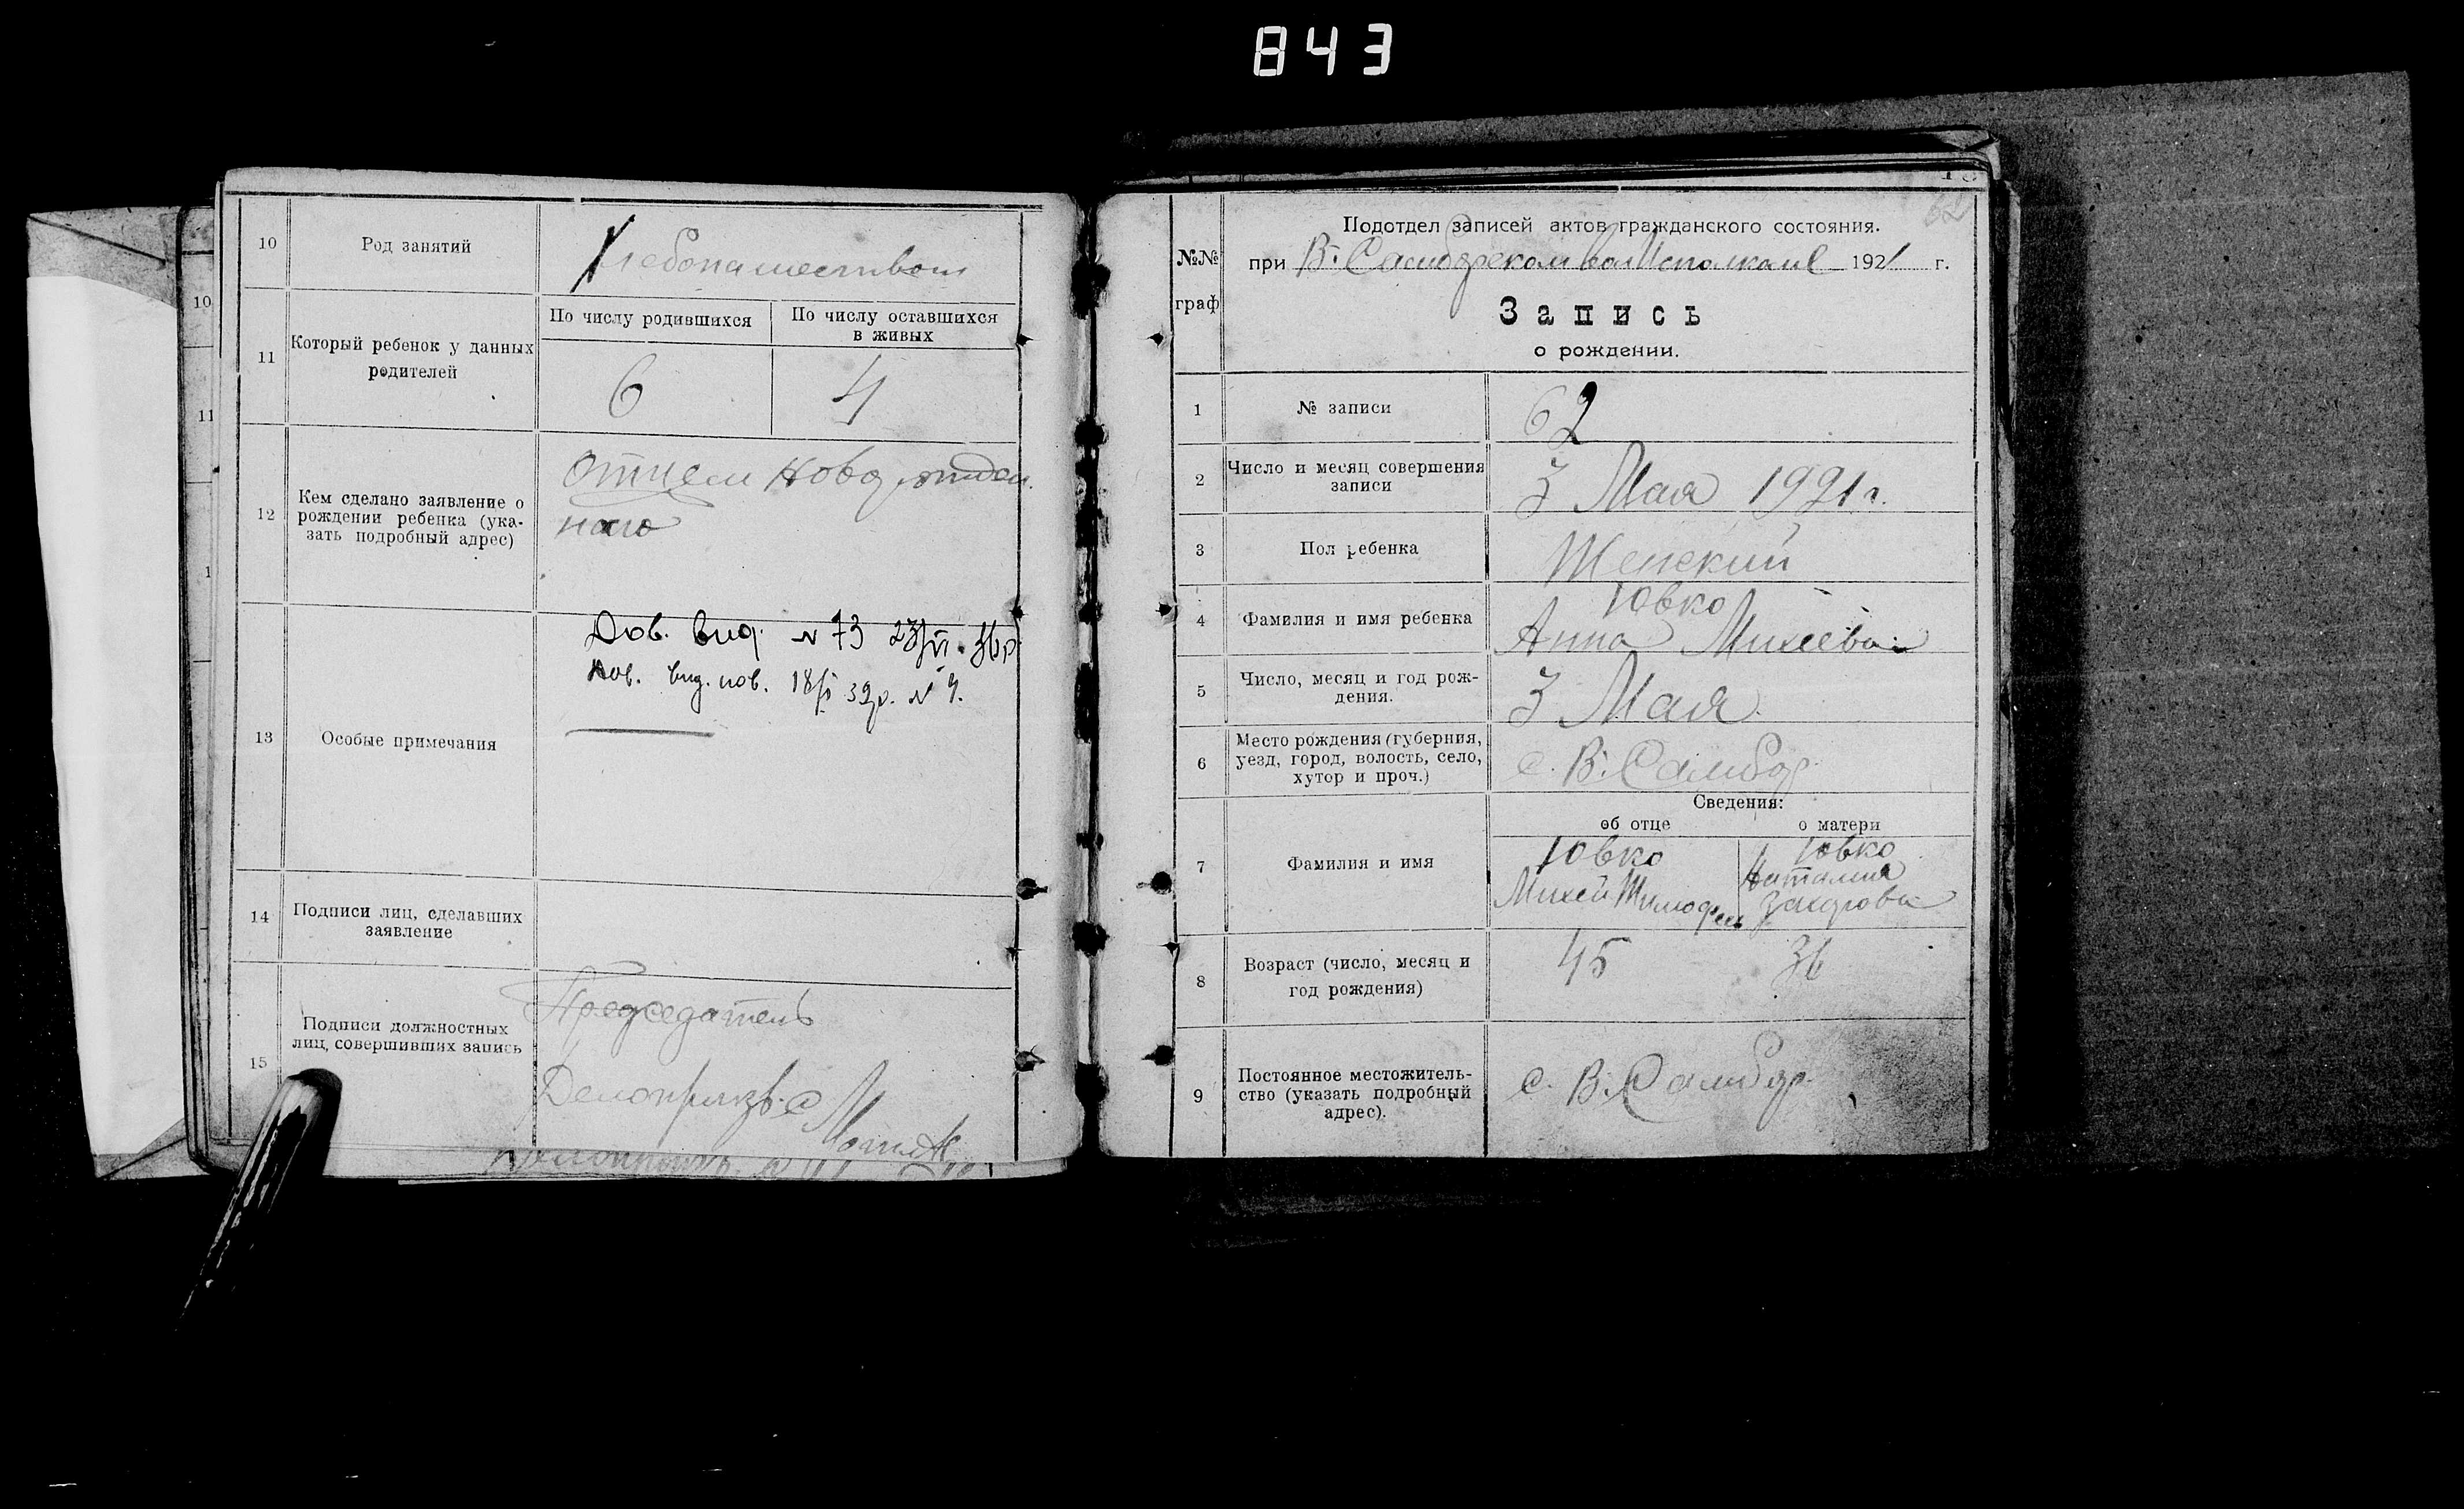 843
10
Род занятий
Хлебопашеством
11
Который ребенок у данных
родителей
По числу родившихся
По числу оставшихся
в живых
6
4
12
Кем сделано заявление о
рождении ребенка (ука-
зать подробный адрес)
отцем новорожден
наго
13
Особые примечания
Дов. вид. № 73 23/VI. 36р.
Дов. вид. пов. 18/I 39р. №
14
Подписи лиц, сделавших
заявление
15
Подписи должностных
лиц, совершивших запись
Председатель
Делопризв.
10
11
1
№№
граф
62
Подотдел записей актов гражданского состояния.
при В. Самборском волИсполкоме 1921 г.
Запись
о рождении.
1
№ записи
62
2
Число и месяц совершения
записи
3 Мая 1921 г.
3
Пол ребенка
Женский
4
Фамилия и имя ребенка
Ювко
Анна Михеева
5
Число, месяц и год рож-
дения.
3 Мая
6
Место рождения (губерния,
уезд, город, волость, село,
хутор и проч.)
с. В. Самбор.
Сведения:
об отце
о матери
7
Фамилия и имя
Ювко
Михей Тимофеев
Ювко
Наталия
Захарова
8
Возраст (число, месяц и
год рождения)
45
36
9
Постоянное местожитель-
ство (указать подробный
адрес).
с. В. Самбор.